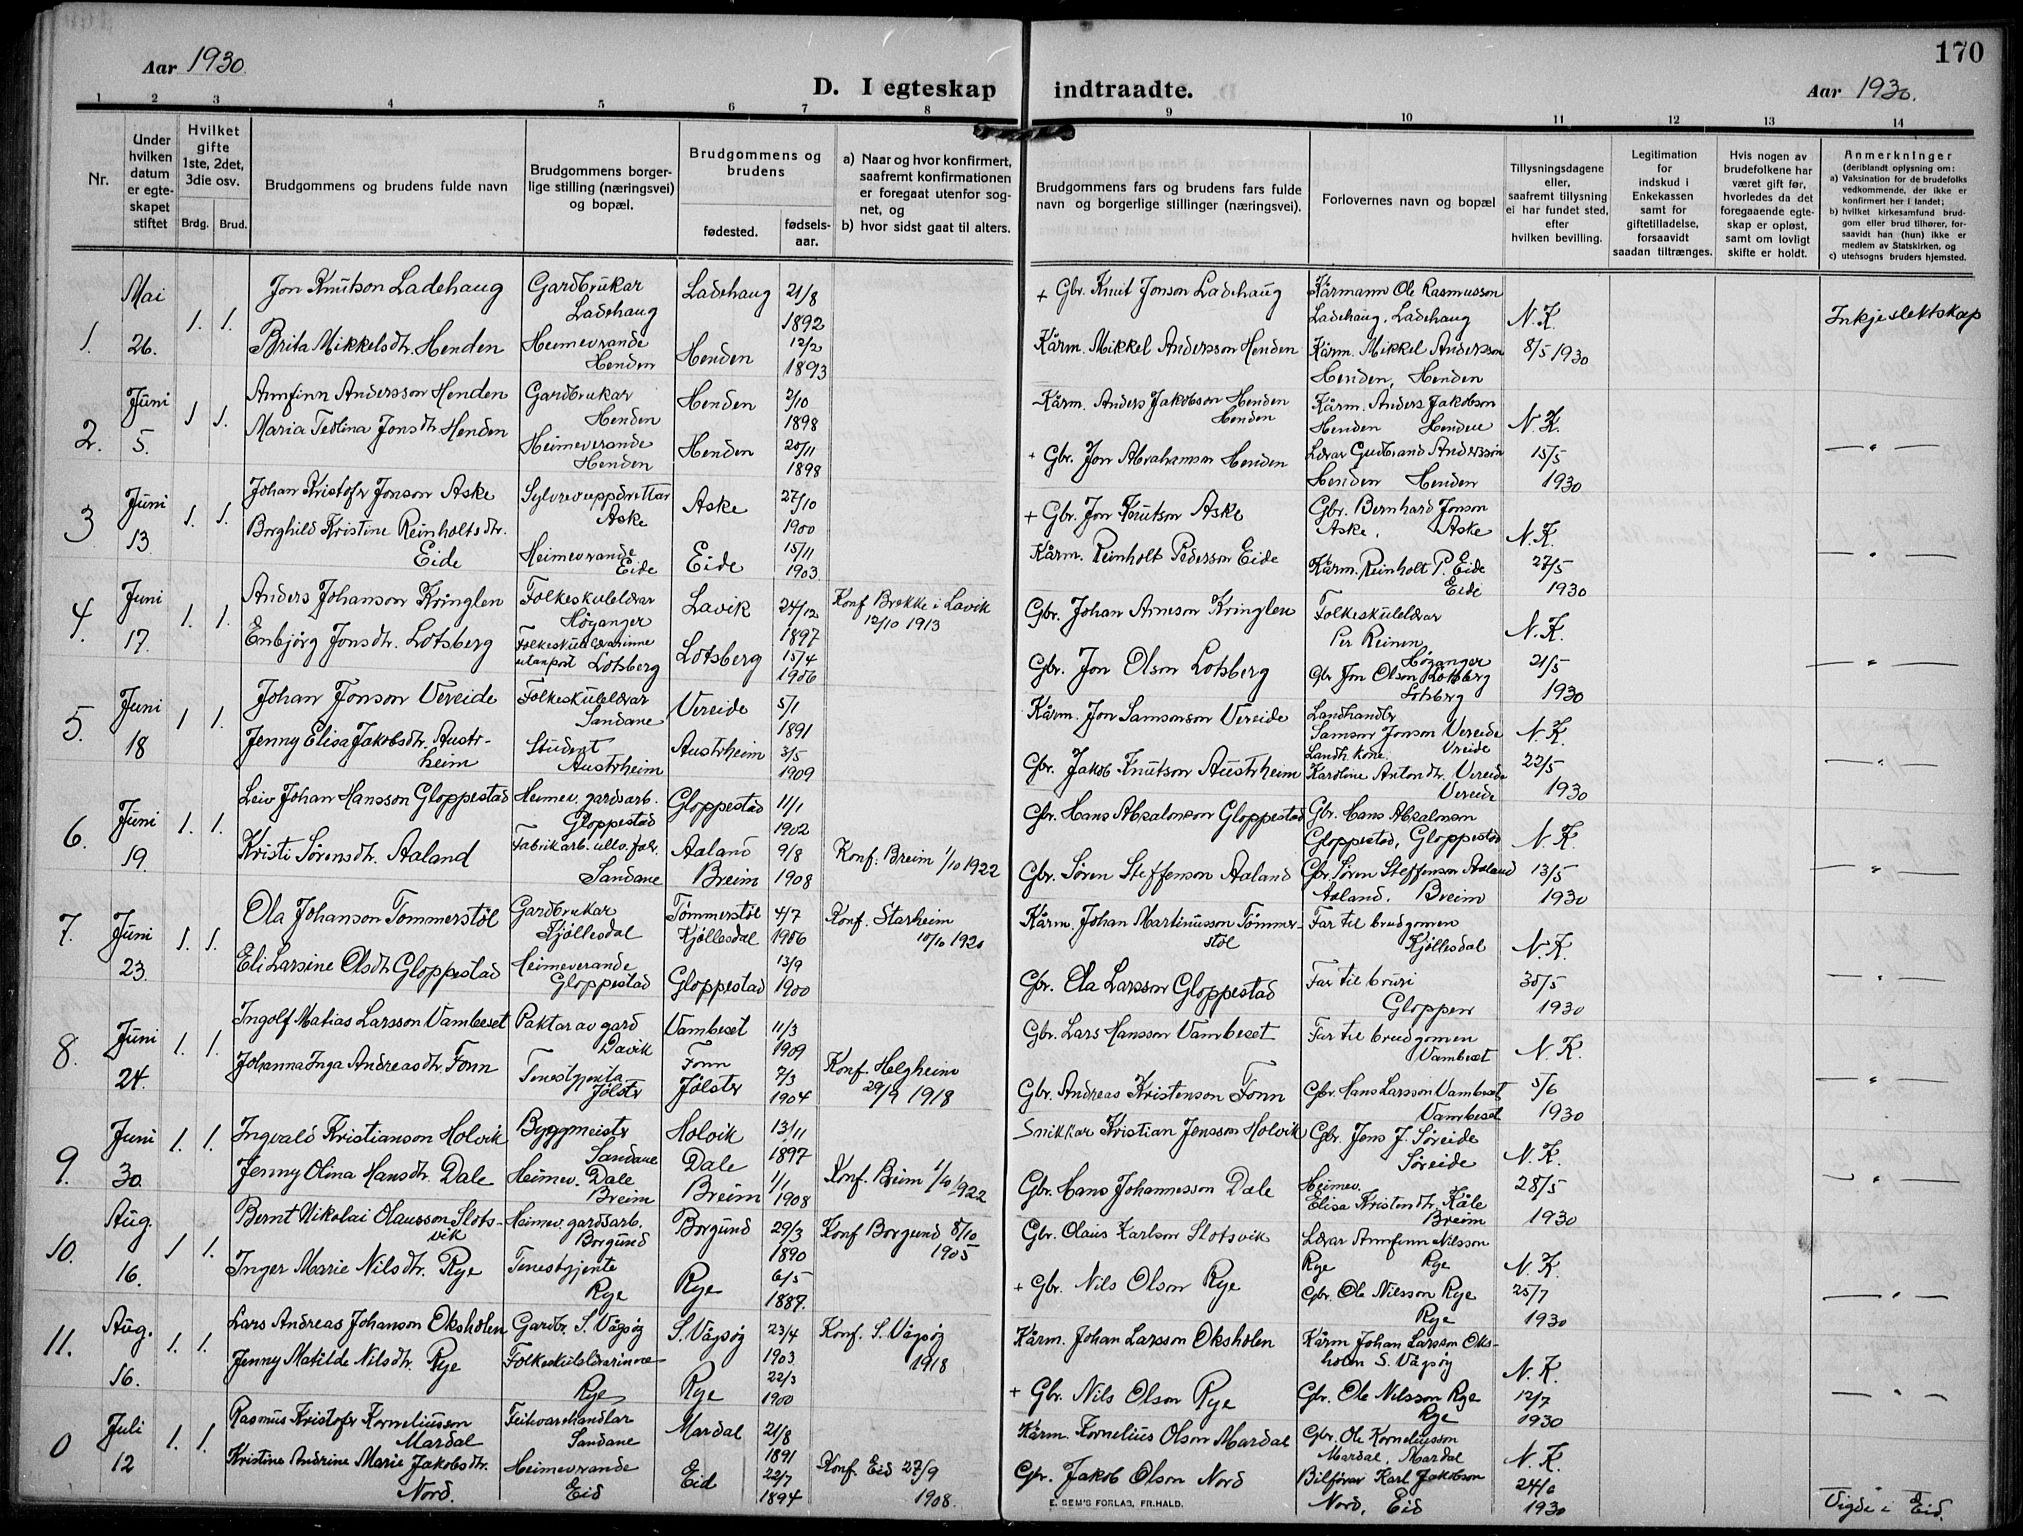 170
Aar 1930.
D. I egteskap indtraadte.
Aar 1930.
1 2 3 4 5 6 7 8 9 10 11 12 13 14
Nr.
Under hvilken datum er egte-skapet stiftet
Hvilket gifte 1ste, 2det, 3die osv.
Brdg. Brud.
Brudgommens og brudens fulde navn
Brudgommens borger-lige stilling (næringsvei) og bopæl.
Brudgommens og brudens
fødested.
fødsels-aar.
a) Naar og hvor konfirmert, saafremt konfirmationen er foregaat utenfor sog-net, og
b) hvor sidst gaat til alters.
Brudgommens fars og brudens fars fulde navn og borgerlige stillinger (næringsvei).
Forlovernes navn og bopæl
Tillysningsdagene eller, saafremt tillysning ei har fundet sted, efter hvilken bevilling.
Legitimation for indskud i Enkekassen samt for giftetilladelse, forsaavidt saadan tiltrænges.
Hvis nogen av brudefolkene har været gift før, hvorledes da det foregaaende egte-skap er opløst, samt om lovligt skifte er holdt.
Anmerkninger
(deriblandt oplysning om:
a) Vaksination for de brudefolks vedkommende, der ikke er konfirmert her i landet;
b) hvilket kirkesamfund brud-gom eller brud tilhører, for-saavidt han (hun) ikke er medlem av Statskirken, og
c) utensogns bruders hjemsted.
1. Mai 26. 1. 1.
Jon Knutson Ladehaug Gardbrukar Ladehaug Ladehaug 21/8 1892
+ Gbr. Knut Jonson Ladehaug Kårmann Ole Rasmusson Ladehaug, Ladehaug
Brita Mikkelsdtr. Henden Heimeverande Henden Henden 12/2 1893
Kårm. Mikkel Andersson Henden Kårm. Mikkel Andersson Henden, Henden
N. K. 8/5 1930 Inkje slektskap
2. Juni 5. 1 1.
Arnfinn Andersson Henden Gardbrukar Henden Henden 2/10 1898
Kårm. Anders Jakobson Henden Henden Kårm. Anders Jakobson Henden Henden
Maria Teolina Jonsdtr Henden Heimeverande Henden Henden 20/11 1898
+ Gbr. Jon Abrahamson Henden Lærar Gudbrand Andersson Henden Henden
N. K. 15/5 1930 — " —
3 Juni 13 1. 1.
Johan Kristofer Jonson Aske Sylvrevuppdrettar Aske Aske 27/10 1900
+ Gbr. Jon Knutson Aske Gbr. Bernhard Jonson Aske, Aske
Borghild Kristine Reinholtsdtr. Eide Heimeverande Eide Eide 15/11 1903
Kårm. Reinholt Pedersson Eide Kårm. Reinholt P. Eide Eide
N. K. 27/5 1930 — " —
4. Juni 17. 1. 1.
Anders Johanson Kringlen Folkeskulelærar Høyanger Lavik 24/12 1897 Konf Brekke i Lavik 12/10 1913
Gbr. Johan Arneson Kringlen Folkeskulelærar Per Reinen Høyanger
Enbjørg Jonsdtr. Lotsberg Folkeskulelærarinne utanpost Lotsberg Lotsberg 15/4 1906
Gbr. Jon Olson Lotsberg Gbr Jon Olson Lotsberg Lotsberg
N. K. 21/5 1930 — " —
5. Juni 18 1 1.
Johan Jonson Vereide Folkeskulelærar Sandane Vereide 5/1 1891
Kårm. Jon Samsonson Vereide Landhandlr Samson Jonson Vereide Vreide
Jenny Elisa Jakobsdtr. Austr-heim Student Austrheim Austrheim 3/5 1909
Gbr. Jakob Knutson Austrheim Landh. kone Karoline Antondtr. Vereide Vereide
N. K. 22/5 1930 — " —
6. Juni 19. 1. 1.
Leiv Johan Hansson Gloppestad Heimev. gardsarb. Gloppestad Gloppestad 11/1 1902
Gbr. Hans Absalonson Gloppestad Gbr. Hans Absalonson Gloppestad, Gloppestad
Kristi Sørensdtr. Aaland Fabrikarb. ullv. fabr. Sandane Aaland Breim 9/8 1908 Konf: Breim 1/10 1922
Gbr. Søren Steffenson Aaland Gbr. Søren Steffenson Aaland Aaland, Breim
N. K. 13/5 1930 — " —
7. Juni 23. 1. 1.
Ola Johanson Tommerstøl Gardbrukar Kjøllesdal Tømmerstøl Kjøllesdal 4/7 1906 Konf. Starheim 10/10 1920
Kårm. Johan Martinusson Tømmer-støl Far til brudgomen Kjøllesdal
Eli Larsine Olsdtr Gloppestad Heimeverande Gloppestad Gloppestad 13/9 1900
Gbr. Ola Larsson Gloppestad Far til bruri Gloppen
N. K. 30/5 1930 — " —
8. Juni 24. 1. 1.
Ingolf Matias Larsson Vambeset Paktar av gard Davik Vambeset 11/3 1909
Gbr. Lars Hansson Vambeset Far til brudgomen Vambeset
Johanna Inga Andreasdtr. Fonn Tenestgjenta Jølster Fonn Jølster 7/3 1904 Konf. Helgheim 29/9 1918
Gbr. Andreas Kristenson Fonn Gbr. Hans Larsson Vambeset Vambeset
N. K. 5/6 1930 — " —
9. Juni 30. 1. 1.
Ingvald Kristianson Holvik Byggmeistr Sandane Holvik 13/11 1897
Snikkar Kristian Jensson Holvik Gbr. Jens J. Søreide Søreide
Jenny Olina Hansdtr. Dale Heimev. Dale Breim Dale Breim 1/1 1908 Konf. Breim 1/10 1922
Gbr. Hans Johannesson Dale Heimev. Elisa Kristendtr. Kåle Breim
N. K. 28/5 1930 — " —
10. Aug. 16. 1 1.
Bernt Nikolai Olausson Slots-vik Heimev. gardsarb. Borgund Borgund 29/3 1890 Konf Borgund 8/10 1905
Gbr. Olaus Karlson Slotsvik Lærar Arnfinn Nilsson Rye Rye
Inger Marie Nilsdtr. Rye Tenestgjente Rye Rye 6/5 1887.
+ Gbr. Nils Olson Rye Gbr. Ole Nilsson Rye Rye
N. K. 25/7 1930 — " —
11. Aug. 16. 1. 1.
Lars Andreas Johanson Oksholen Gardbr. S. Vågsøy S. Vågsøy 23/4 1903 Konf. S. Vågsøy 1918
Kårm. Johan Larsson Oksholen Kårm Johan Larsson Oks-holen S. Vågsøy
Jenny Matilde Nilsdtr. Rye Folkeskulelærarinne Rye Rye 22/3 1900
+ Gbr. Nils Olson Rye Gbr. Ole Nilsson Rye Rye
N. K. 12/7 1930 — " —
0 Juli 12 1. 1.
Rasmus Kristofer Korneliusson Mardal Feitevarehandlar Sandane Mardal 21/8 1891
Kårm. Kornelius Olson Mardal Gbr. Ole Korneliusson Mardal, Mardal
Kristine Andrine Marie Jakobsdtr. Nord. Heimeverande Eid Eid 22/7 1894 Konf. Eid 27/9 1908.
Gbr. Jakob Olson Nord Bilførar Karl Jakobson Nord, Eid
N. K. 24/6 1930 Vigde i Eid.
E. SEM'S FORLAG, FR.HALD.